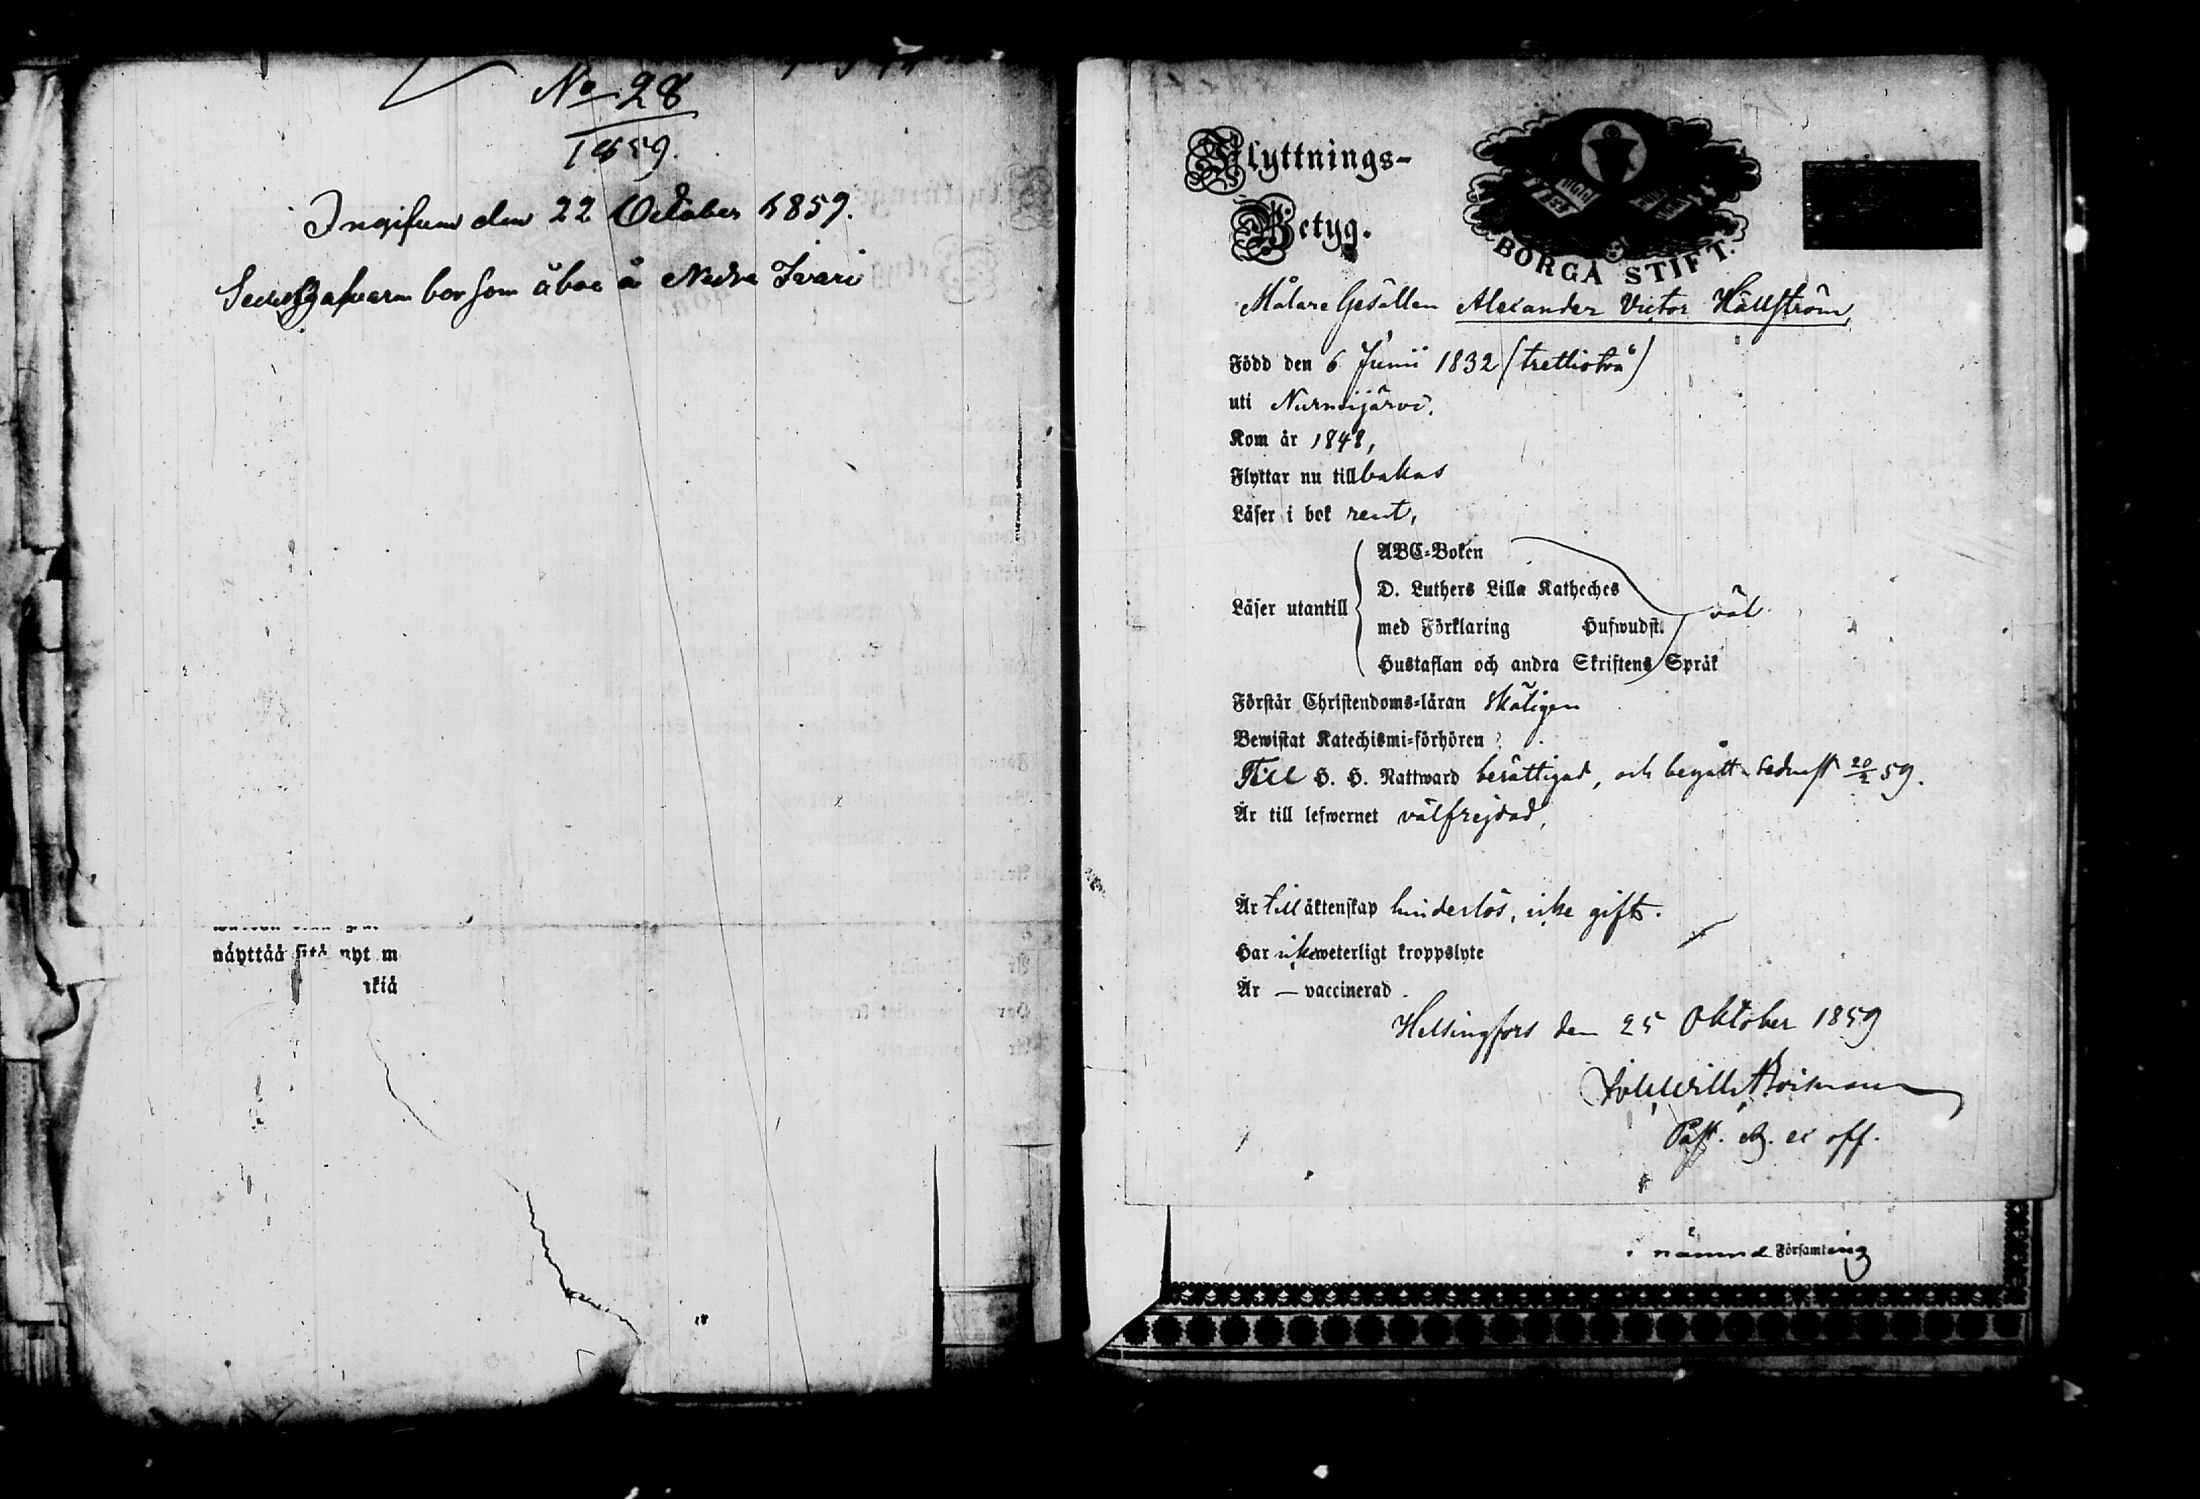 No 28
1859.
Ingifven den 22 October 1859.
bor som åboe å Nedre
näyttää sitä nyt m
kiä
Flyttnings-
Betyg.
BORGÅ STIFT.
Målare Gesällen Alexander Victor Hällström,
Född den 6 Junii 1832 (trettiotvå)
uti Nurmijärvi.
Kom år 1848,
Flyttar nu tillbakas
Läser i bok rent,
Läser utantill
ABC-Boken
D. Luthers Lilla Katheches
med Förklaring Hufwudst.
Hustaflan och andra Skriftens Språk
väl
Förstår Christendoms-läran skäligen
Bewistat Katechismi-förhören
Till H. H. Nattward berättigad, och begått den sednast 20/2 59.
Är till lefwernet välfrejdad,
Är till äktenskap hinderlös, icke gift.
Har icke weterligt kroppslyte
Är — vaccinerad.
Helsingfors den 25 Oktober 1859
Past. adj. ex off.
i nämnde Församling